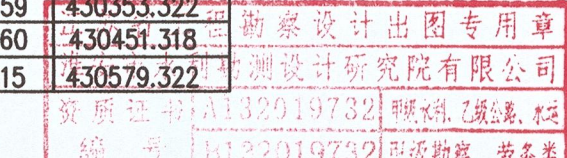 59 430353.322
60 430451.318
15 430579.322
程勘察设计出图专用章
勘测设计研究院有限公司
资质证书 A132019732 甲级水利、乙级公路、水运
编号 B132019732 勘察 劳务类